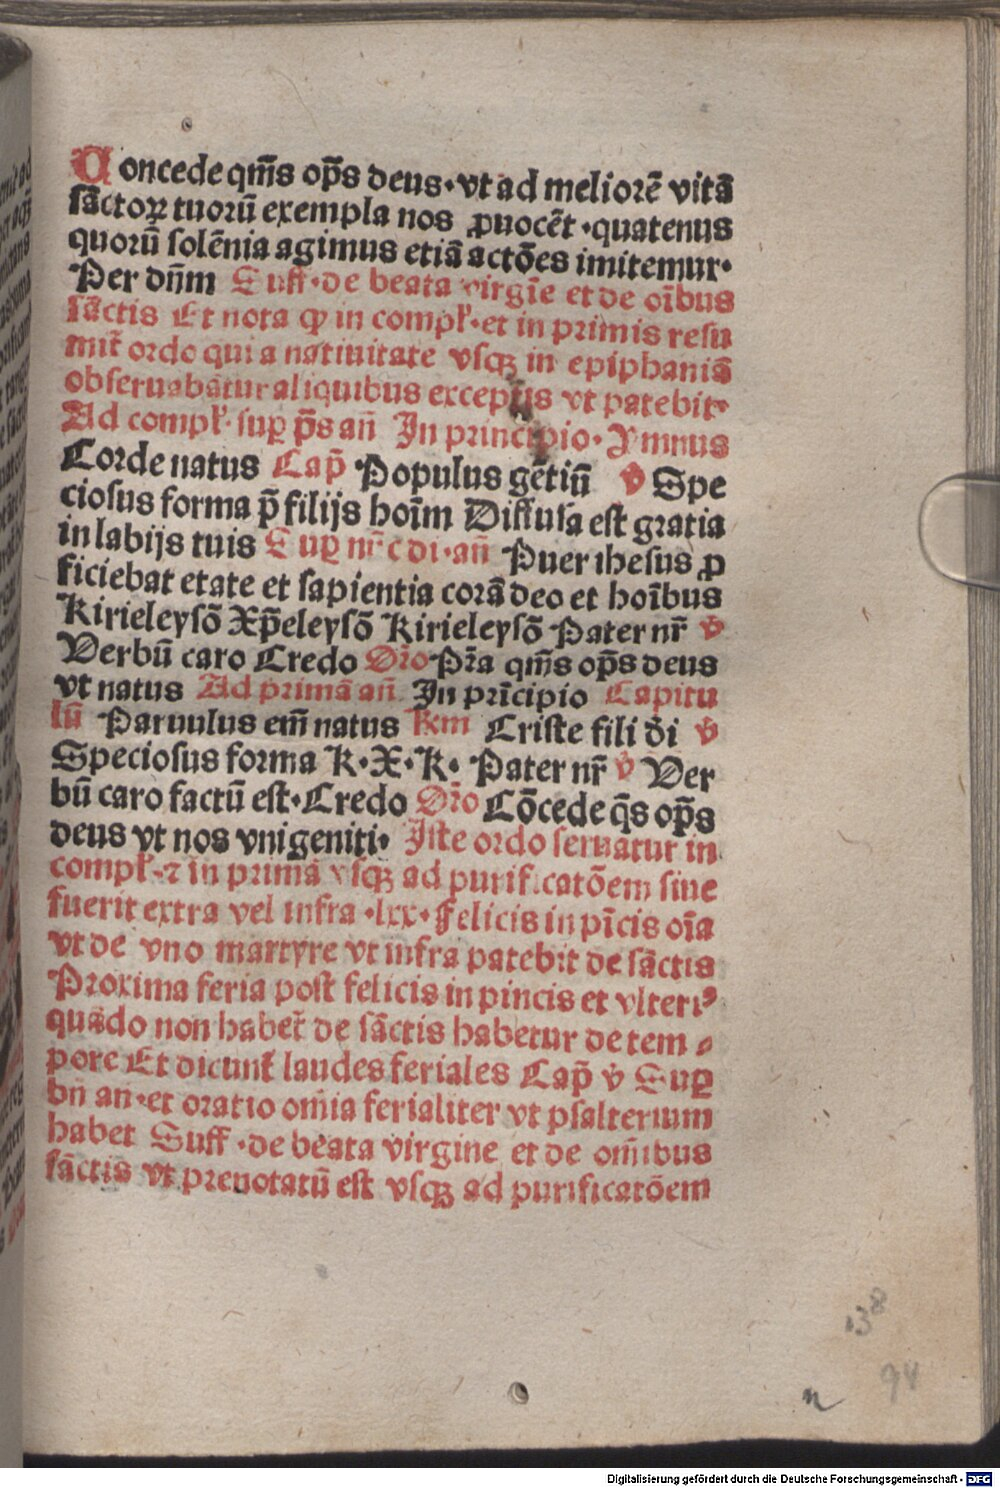 Concede qm̄s op̄s deus·vt ad meliorē vitā
sāctoꝝ tuorū exempla nos ꝓuocēt·quatenus
quorū solēnia agimus etiā actōes imitemur·
Per dn̄m Suff·de beata virgīe et de oībus
sāctis Et nota ꝙ in compl̛·et in primis resu
mit̄ ordo qui a natiuitate vsqꝫ in epiphaniā
obseruabātur aliquibus exceptis vt patebit·
Ad compl̛·suꝑ p̄s an̄ In principio·Ymnus
Corde natus Cap̄ Populus gētiū v̄ Spe
ciosus forma p̄ filijs hoīm Diffusa est gratia
in labijs tuis Suꝑ nūc di·an̄ Puer ihesus ꝓ
ficiebat etate et sapientia corā deo et hoībus
Kirieleysō Xp̄eleysō Kirieleysō Pater nr̄ v̄
Verbū caro Credo Or̄o Pr̄a qm̄s op̄s deus
vt natus Ad primā an̄ In prīcipio Capitu
lū Paruulus em̄ natus Rm Criste fili di v̄
Speciosus forma K·X·K· Pater nr̄ v̄ Ver
bū caro factū est·Credo Or̄o Cōcede q̄s op̄s
deus vt nos vnigeniti· Iste ordo seruatur in
compl̛·⁊ in prima vsqꝫ ad purificatōem siue
fuerit extra vel infra·lxx·Felicis in pīcis oīa
vt de vno martyre vt infra patebit de sāctis
Proxima feria post felicis in pincis et vlteriꝰ
quādo non habet̄ de sāctis habetur de tem
pore Et dicunt̄ laudes feriales Cap̄ v̄ Suꝑ
bn̄ an·et oratio om̄ia ferialiter vt psalterium
habet Suff·de beata virgine et de om̄ibus
sāctis vt prenotatū est vsqꝫ ad purificatōem
138
94
n
Digitalisierung gefördert durch die Deutsche Forschungsgemeinschaft - DFG